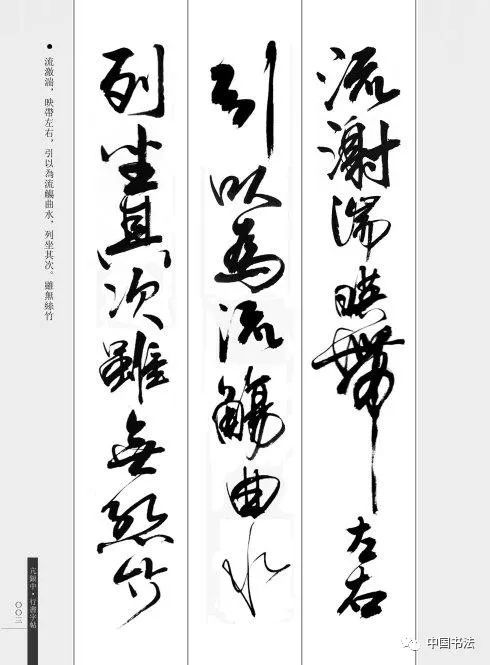 流激湍映帶左右
引以為流觴曲水
列坐其次雖無絲竹
● 流激湍，映帶左右，引以為流觴曲水，列坐其次。雖無絲竹
行書字帖
〇〇三
中国书法